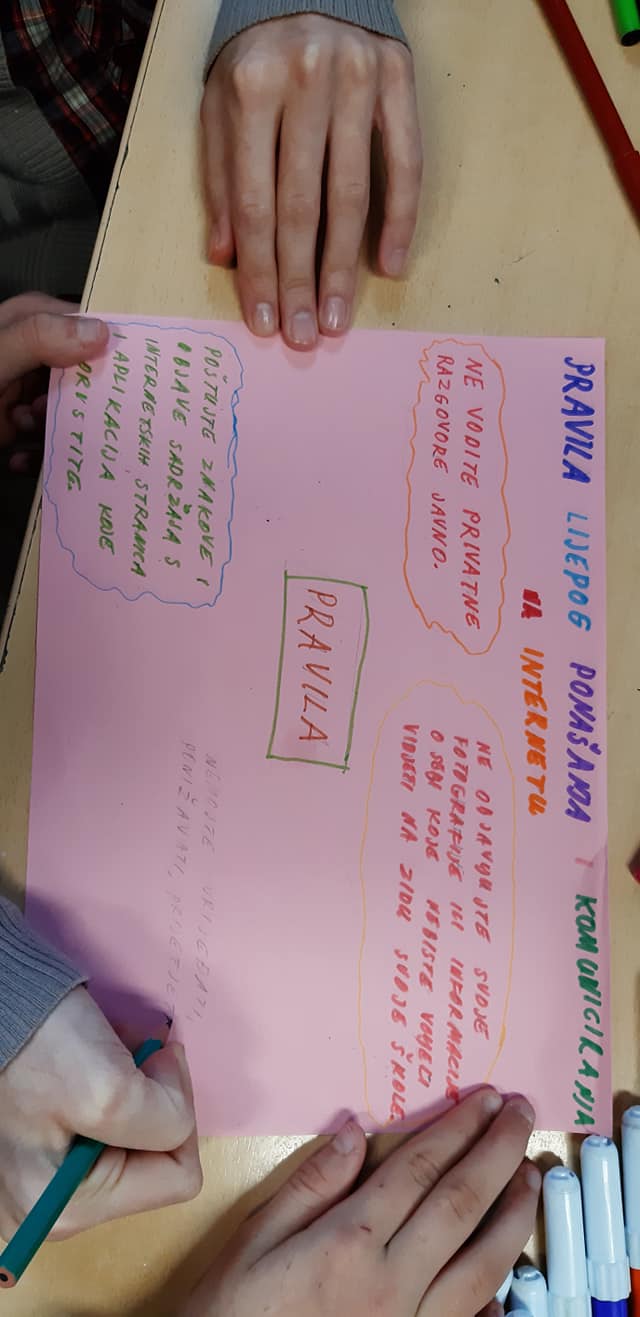 PRAVILA LIJEPOG PONAŠANJA I KOMUNICIRANJA
NA INTERNETU
NE VODITE PRIVATNE
RAZGOVORE JAVNO.
NE OBJAVLJUJTE SVOJE
FOTOGRAFIJE ILI INFORMACIJE
O SEBI KOJE NEBISTE VOLJELI
VIDJETI NA ZIDU SVOJE ŠKOLE
PRAVILA
POŠTUJTE ZNAKOVE I
OBJAVE SADRŽAJA S
INTERNETSKIH STRANICA
I APLIKACIJA KOJE
KORISTITE
NEMOJTE VRIJEĐATI,
PONIŽAVATI,